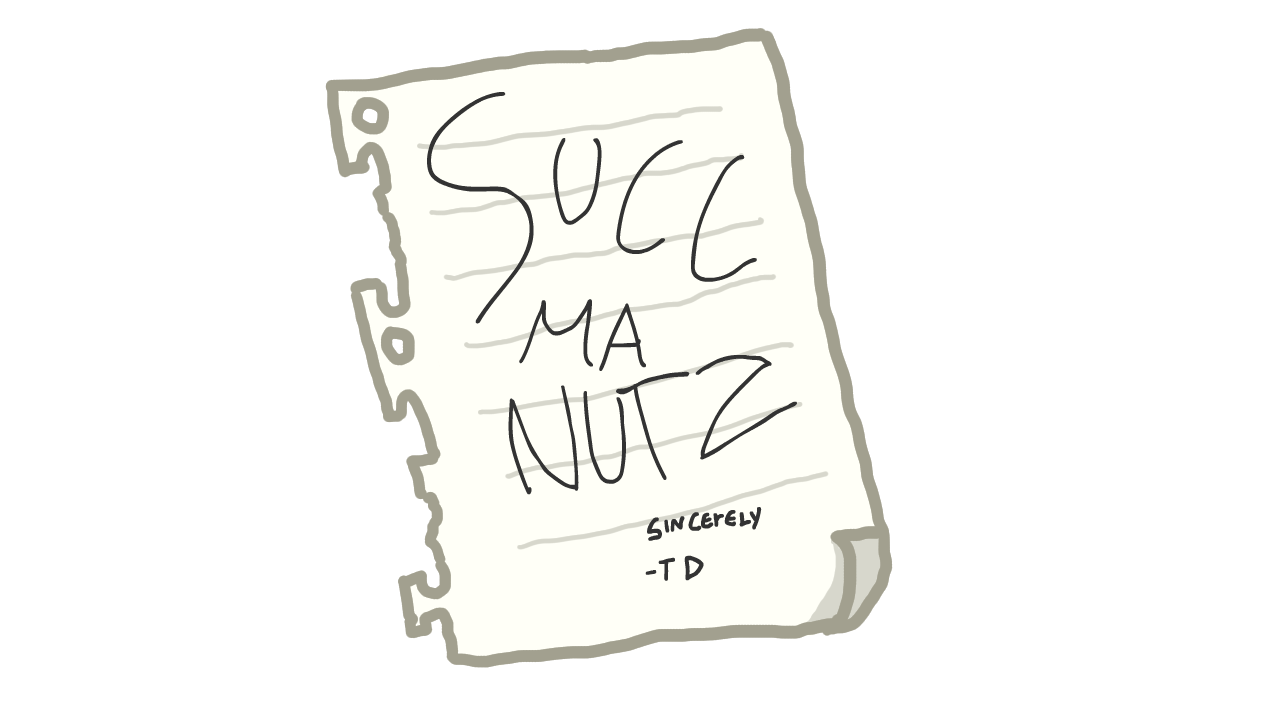 SUCC
MA
NUTZ
SINCErELY
-T D